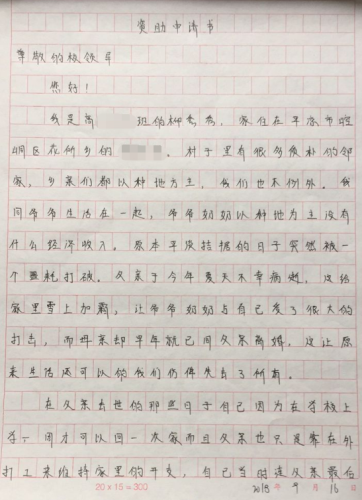 资助申请书
尊敬的校领导
您好！
我是高 班的柳秀秀，家住在平凉市崆
峒区在何乡的 。村子里有很多质朴的邻
家，乡亲们都以种地为主，我们也不例外。我
同爷爷生活在一起，爷爷奶奶以种地为主没有
什么经济收入。原本平淡拮据的日子突然被一
个噩耗打破。父亲于今年夏天不幸病逝，这给
家里雪上加霜，让爷爷奶奶与自己受了很大的
打击，而母亲却早年就已同父亲离婚，这让原
来生活还可以的我们仿佛失去了所有。
在父亲去世的那些日子自己因为在学校上
学一周才可以回一次家而且父亲也只是靠在外
打工来维持家里的开支，自己当时连父亲最后
20×15=300
2018 年 9 月 16 日